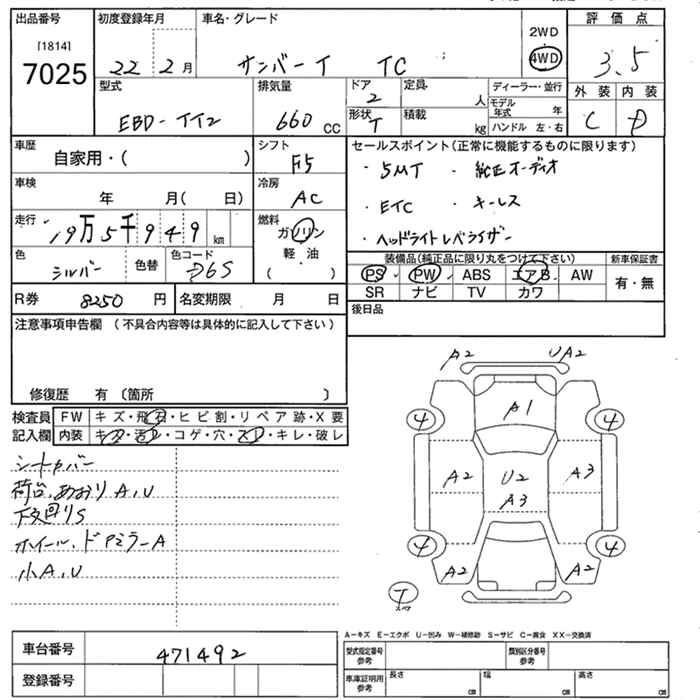 出品番号 初度登録年月 車名・グレード 評価点
[1814] 2WD
7025 22 2月 サンバーT TC 4WD 3.5
型式 排気量 ドア 定員 ディーラー・並行 外装 内装
2 人 モデル年式 年
EBD-TT2 660 CC 形状 積載 C D
T kg ハンドル 左・右
車歴 シフト セールスポイント(正常に機能するものに限ります)
自家用・( ) F5 ・5MT ・純正オーディオ
車検 冷房
年 月( 日) AC ・ETC ・キーレス
走行 燃料
19万5千949km ガソリン ・ヘッドライトレベライザー
色 色替 色コード 軽油 装備品(純正品に限り丸をつけて下さい) 新車保証書
シルバー D6S ( ) PS PW ABS エアB AW 有・無
SR ナビ TV カワ
R券 8250円 名変期限 月 日 後日品
注意事項申告欄 (不具合内容等は具体的に記入して下さい)
修復歴 有 〔箇所 〕
検査員 FW キズ・飛石・ヒビ割・リペア跡・X要
記入欄 内装 キズ・汚レ・コゲ・穴・スレ・キレ・破レ
シートカバー
荷台、あおりA,U
下廻りS
ホイール、ドアミラーA
小A,U
A2 UA2
A1
4 4
A2 U2 A3
A3
4 4
A2 A2
T
スペア
A-キズ E-エクボ U-凹み W-補修跡 S-サビ C-腐食 XX-交換済
車台番号 471492 型式指定番号 参考 類別区分番号 参考
登録番号 車庫証明用 参考 長さ cm 幅 cm 高さ cm